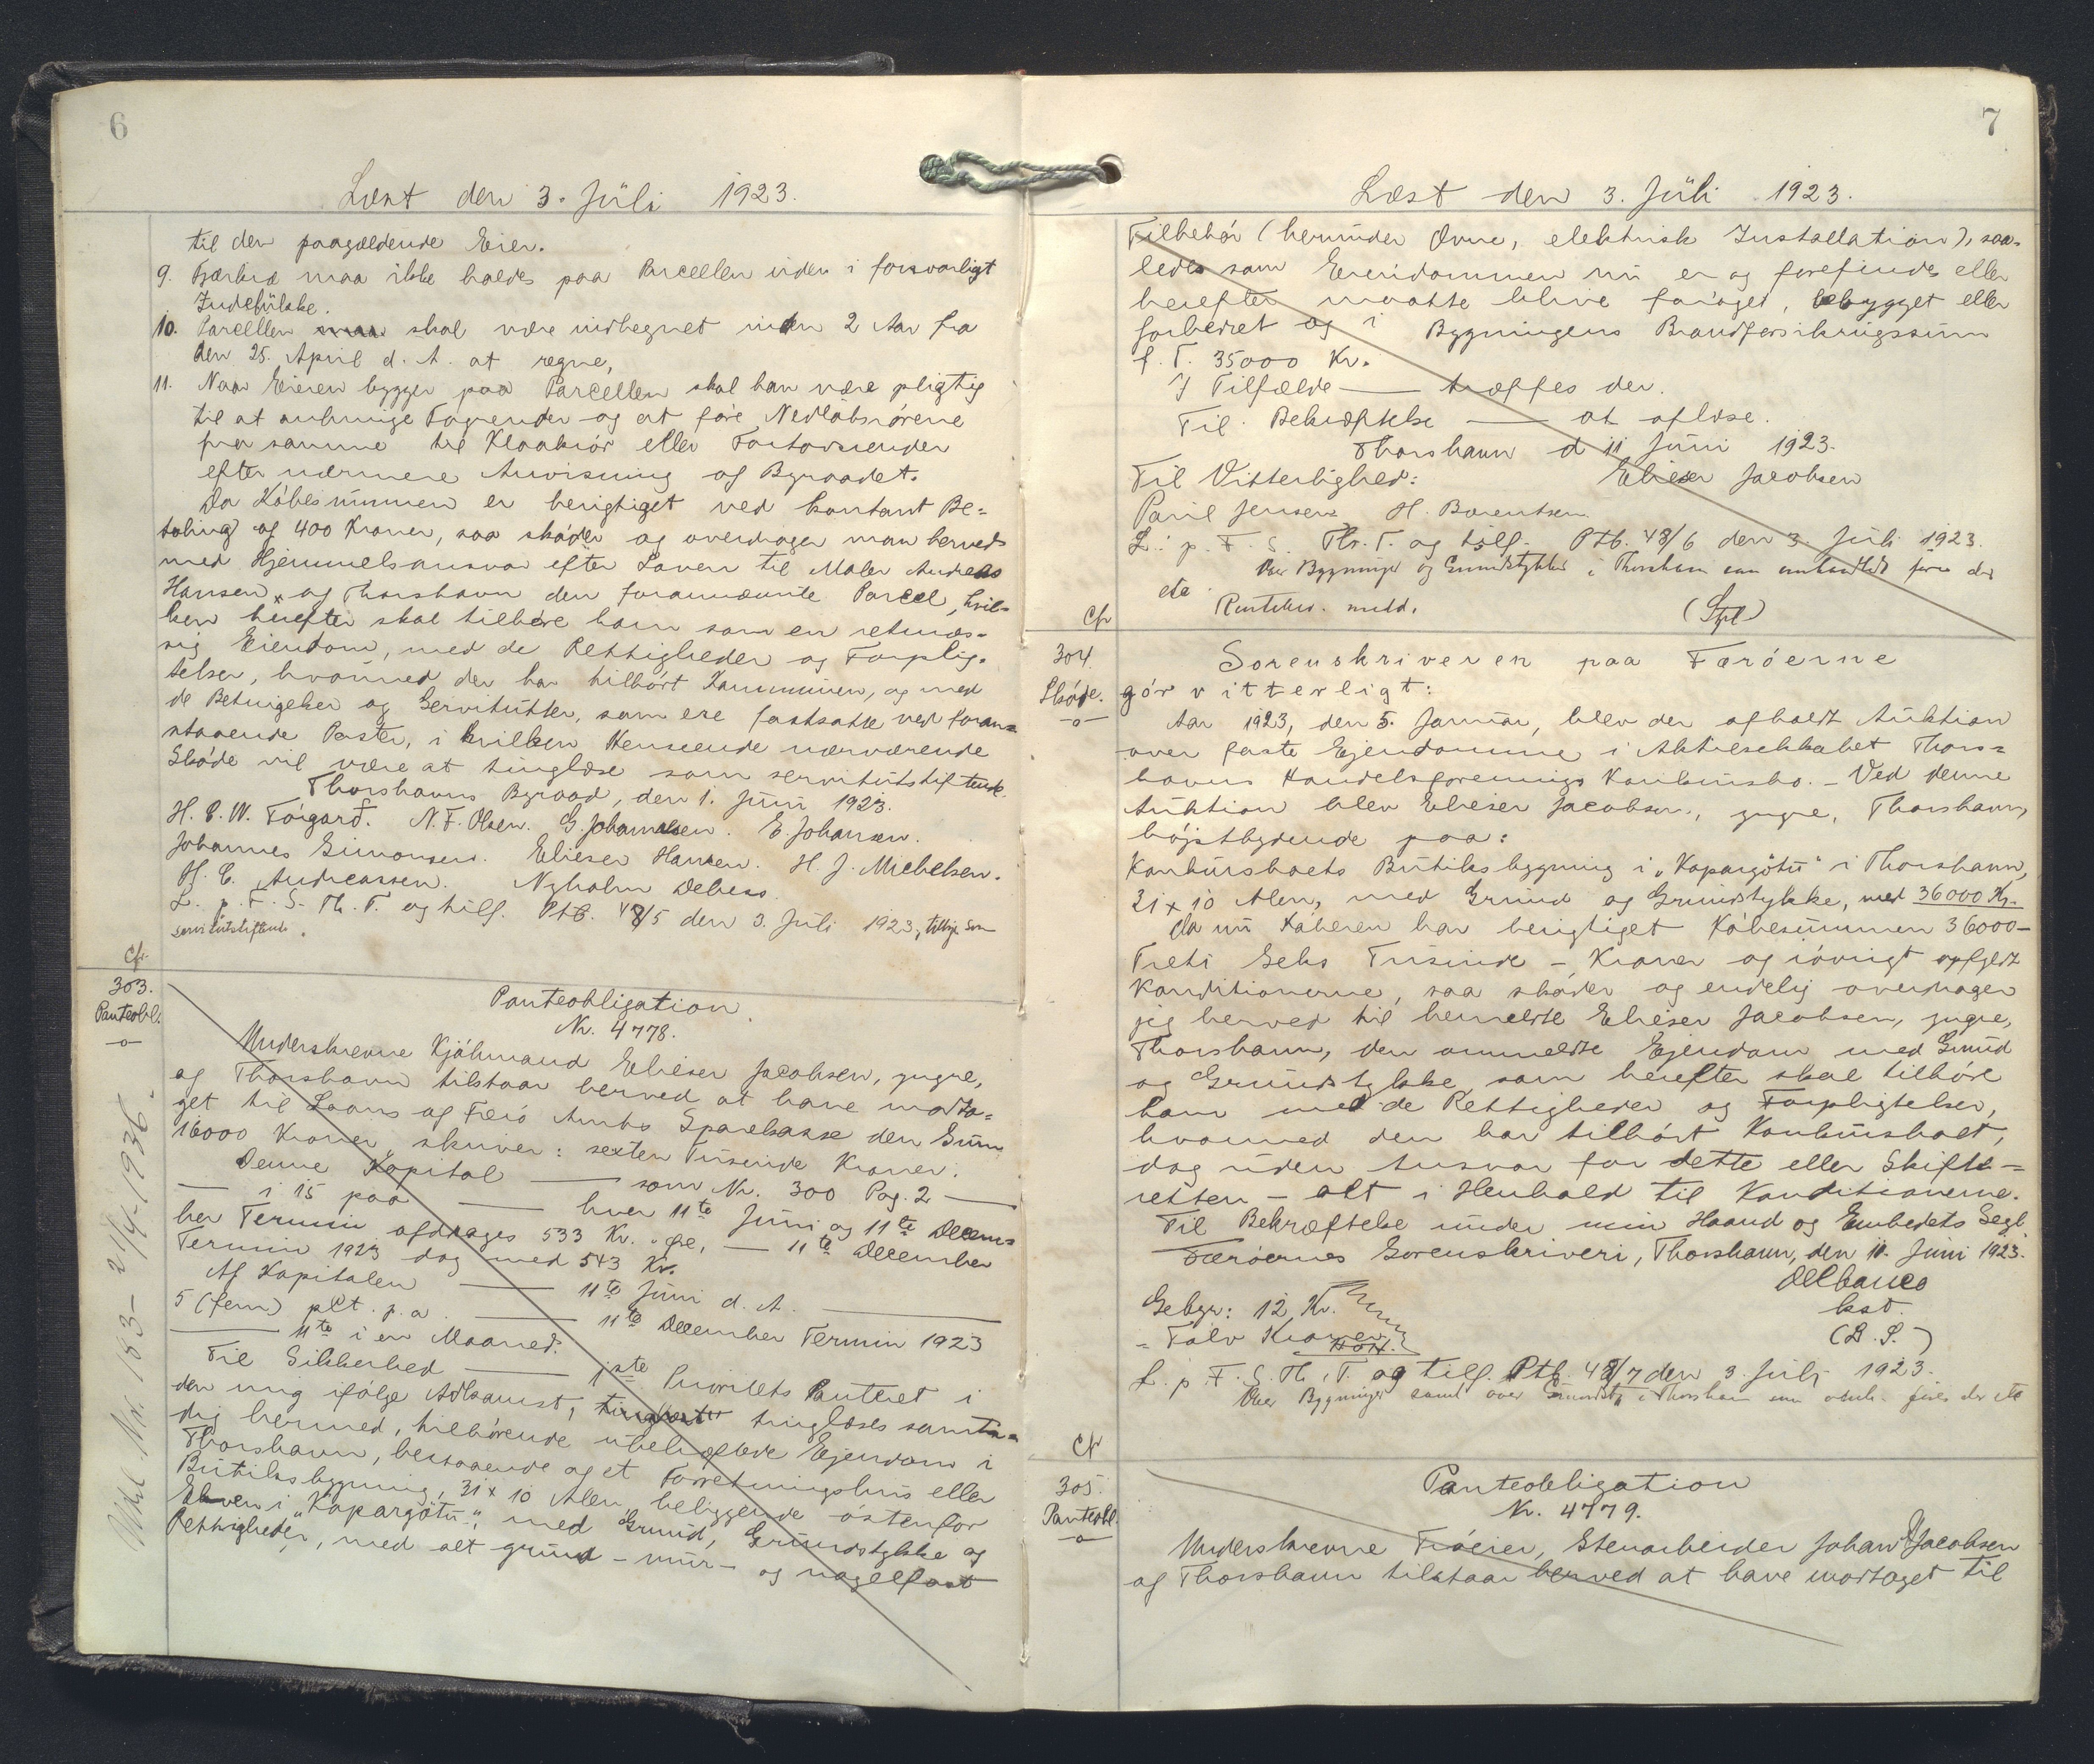 6
Læst den 3. Juli 1923.
til den paagældende Eier.
9. Fjærkræ maa ikke holdes paa Parcellen uden i forsvarligt
Indelukke.
10. Parcellen skal være indhegnet inden 2 Aar fra
den 25. April d. A. at regne,
11. Naar Eieren bygger paa Parcellen skal han være pligtig
til at anbringe Tagrender og at føre Nedløbsrørene
fra samme til Kloakrør eller Fortovsrender
efter nærmere Anvisning af Byraadet.
Da Købesummen er berigtiget ved kontant Be=
taling af 400 Kroner, saa skøder og overdrager man herved
med Hjemmelsansvar efter Loven til Maler Andreas
Hansen af Thorshavn den forannævnte Parcel, hvil-
ken herefter skal tilhøre ham som en retmæs-
sig Eiendom, med de Rettigheder og Forplig-
telser, hvormed den har tilhørt Kommunen, og med
de Betingelser og Servitutter, som ere fastsatte ved foran=
staaende Poster, i hvilken Henseende nærværende
Skøde vil være at tinglæse som servitutstiftende.
Thorshavns Byraad, den 1. Juni 1923.
H. C. W. Tórgarð. N. F. Olsen. G. Johannesen. E. Johansen.
Johannes Simonsen. Elieser Hansen. H. J. Michelsen.
H. C. Andreassen. Nyholm Debess.
L. p. F. S. Th. T. og tilf. Ptb. 48/5 den 3. Juli 1923, tillige som
servitutstiftende.
Cfr.
303.
Panteobl.
-o-
Panteobligation
Nr. 4778.
Underskrevne Kjøbmand Elieser Jacobsen, yngre,
af Thorshavn tilstaar herved at have modta=
get til Laans af Færø Amts Sparekasse den Sum
16000 Kroner, skriver: sexten Tusinde Kroner.
Denne Kapital — som Nr. 300 Pag. 2 —
— i 15 paa — hver 11te Juni og 11te Decem=
ber Termin afdrages 533 Kr. " øre, — 11te December
Termin 1923 dog med 543 Kr.
Af Kapitalen — 11te Juni d. A. —
5 (fem) pCt. p. a. — 11te December Termin 1923
— 11te i en Maaned.
Til Sikkerhed — 1ste Prioritets Panteret i
den mig ifølge Adkomst, tinglæses samti=
dig hermed, tilhørende ubehæftede Ejendom i
Thorshavn, bestaaende af et Forretningshus eller
Butiksbygning, 31 x 10 Alen, beliggende østenfor
Elven i "Kopargøtu", med Grund, Grundstykke og
Rettigheder, med alt grund- mur- og nagelfast
7
Læst den 3. Juli 1923.
Tilbehør (herunder Ovne, elektrisk Installation), saa-
ledes som Eiendommen nu er og forefindes eller
herefter maatte blive forøget, bebygget eller
forbedret og i Bygningens Brandforsikringssum
f. T. 35000 Kr.
I Tilfælde — træffes der.
Til Bekræftelse — at aflæse.
Thorshavn d 11 Juni 1923.
Til Vitterlighed: Elieser Jacobsen
Poul Jensen H. Barentsen.
L. p. F. S. Th. T. og tilf. Ptb. 48/6 den 3. Juli 1923.
Over Bygninger og Grundstykker i Thorshavn
etc
Cfr
304.
Skøde.
-o-
Sorenskriveren paa Færøerne
gør vitterligt:
Aar 1923, den 5. Januar, blev der afholdt Auktion
over faste Ejendomme i Aktieselskabet Thors=
havns Handelsforenings Konkursbo. - Ved denne
Auktion blev Elieser Jacobsen, yngre, Thorshavn,
højstbydende paa:
Konkursboets Butiksbygning i "Kopargøtu" i Thorshavn,
31 x 10 Alen, med Grund og Grundstykke, med 36000 Kr.
Da nu Køberen har berigtiget Købesummen 36000-
Treti Seks Tusinde - Kroner og iøvrigt opfyldt
Konditionerne, saa skøder og endelig overdrager
jeg herved til bemeldte Elieser Jacobsen, yngre,
Thorshavn, den ommeldte Ejendom med Grund
og Grundstykke, som herefter skal tilhøre
ham med de Rettigheder og Forpligtelser,
hvormed den har tilhørt Konkursboet,
dog uden Ansvar for dette eller Skifte=
retten - alt i Henhold til Konditionerne.
Til Bekræftelse under min Haand og Embedets Segl
Færøernes Sorenskriveri, Thorshavn, den 11. Juni 1923.
Delbanco
kst.
Gebyr: 12 Kr. (L. S.)
= Tolv Kroner.
L. p. F. S. Th. T. og tilf. Ptb. 48/7 den 3. Juli 1923.
Over Bygninger samt over Grundst. i Thorshavn
Cfr
305.
Panteobl.
-o-
Panteobligation
Nr. 4779.
Underskrevne Trøeier, Stenarbeider Johan Jacobsen
af Thorshavn tilstaar herved at have modtaget til